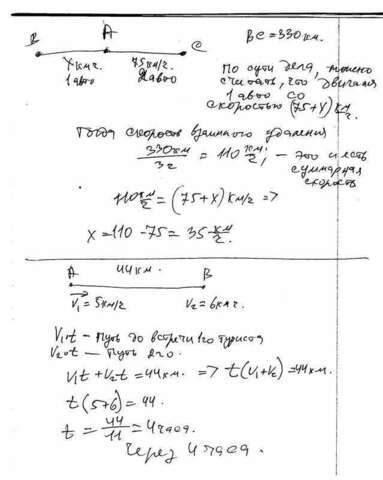 A
B C BC = 330 км.
x км/ч. 75 км/ч.
1 авто 2 авто
По сути дела, можно
считать, что двигался
1 авто со
скоростью (75+x) км/ч.
Тогда скорость взаимного удаления
330 км / 3 ч = 110 км/ч, – это и есть
суммарная
скорость
110 км/ч = (75+x) км/ч =>
x = 110 - 75 = 35 км/ч.
44 км.
A B
V₁ = 5 км/ч V₂ = 6 км/ч.
V₁t – Путь до встречи 1го туриста
V₂t – Путь 2го.
V₁t + V₂t = 44 км. => t(V₁+V₂) = 44 км.
t(5+6) = 44.
t = 44/11 = 4 часа.
Через 4 часа.